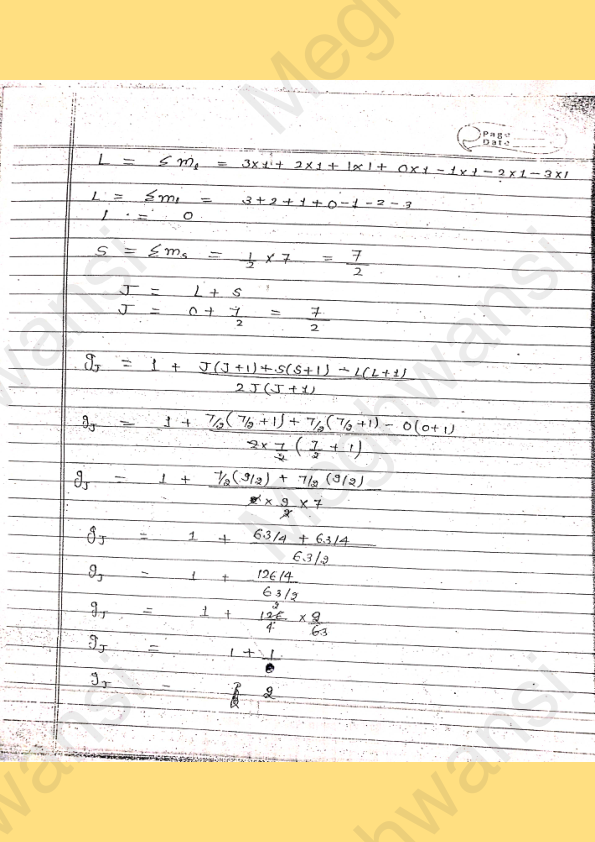 Page
Date
L = Σml = 3x1 + 2x1 + 1x1 + 0x1 - 1x1 - 2x1 - 3x1
L = Σml = 3+2+1+0-1-2-3
L = 0
S = Σms = 1/2 x 7 = 7/2
J = L + S
J = 0 + 7/2 = 7/2
gJ = 1 + J(J+1)+S(S+1)-L(L+1) / 2J(J+1)
gJ = 1 + 7/2(7/2+1)+7/2(7/2+1)-0(0+1) / 2x7/2(7/2+1)
gJ = 1 + 7/2(9/2) + 7/2(9/2) / 2 x 9/2 x 7
gJ = 1 + 63/4 + 63/4 / 63/2
gJ = 1 + 126/4 / 63/2
gJ = 1 + 126/4 x 2/63
gJ = 1 + 1
gJ = 2
Meghwansi